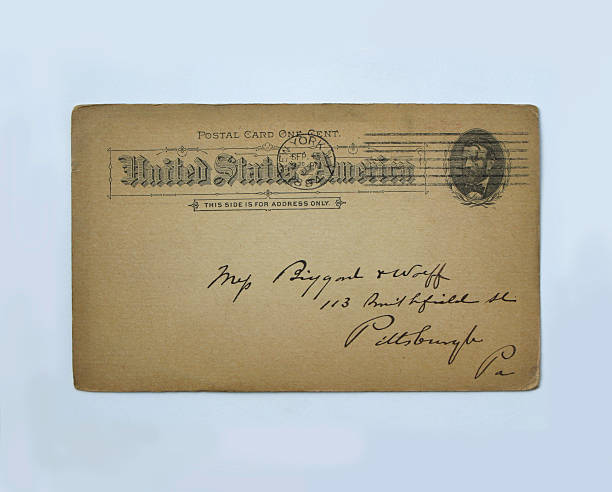 POSTAL CARD ONE CENT.
United States of America
THIS SIDE IS FOR ADDRESS ONLY.
NEW YORK, N.Y.
SEP
1894
& Wolff
113 Smithfield St
Pittsburgh
Pa